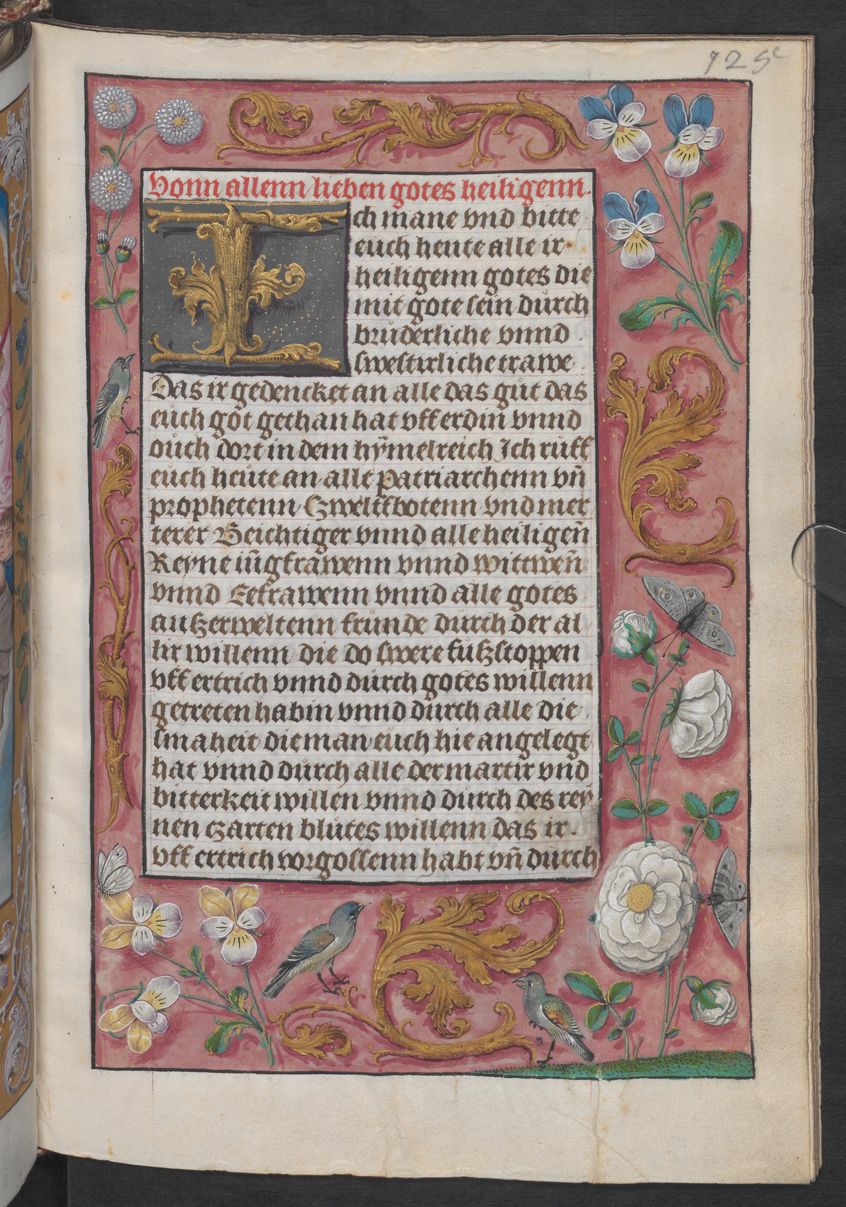 125c
Vonn allenn lieben gotes heiligenn.
Ich mane vnd bitte
euch heute alle ir
heiligenn gotes die
mit gote sein durch
brůderliche vnnd
swestirliche trawe
Das ir gedencket an alle das gůt das
euch got gethan hat vff erdin vnnd
ouch dort in dem hÿmelreich Ich růff
euch heůte an alle patriarchenn vn̄
prophetenn Czwelffbotenn vnd mer
terer Beichtiger vnnd alle heiligen̄
Reyne iūgfrawenn vnnd wittwen̄
vnnd Eefrawenn vnnd alle gotes
außerweltenn frůnde durch der al
lir willenn die do swere fußstoppen
vff ertrich vnnd důrch gotes willenn
getreten habin vnnd důrch alle die
smaheit die man euch hie angelegt
hat vnnd důrch alle der martir vnd
bitterkeit willen vnnd durch des rey
nen czarten blůtes willenn das ir
vff ertrich vorgossenn habt vn̄ durch